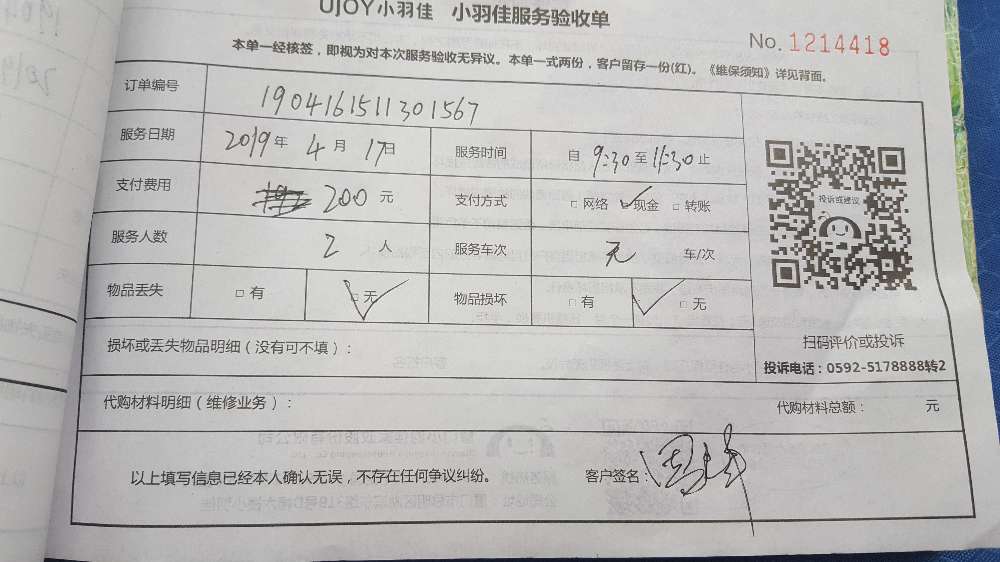 UJOY小羽佳 小羽佳服务验收单
No. 1214418
本单一经核签，即视为对本次服务验收无异议。本单一式两份，客户留存一份(红)。《维保须知》详见背面。
订单编号 1904161511301567
服务日期 2019年 4月 17日 服务时间 自 9:30 至 11:30 止
支付费用 200 元 支付方式 □ 网络 ☑ 现金 □ 转账
投诉或建议
服务人数 2 人 服务车次 无 车/次
物品丢失 □ 有 ☑ 无 物品损坏 □ 有 ☑ 无
扫码评价或投诉
损坏或丢失物品明细（没有可不填）：
投诉电话：0592-5178888转2
代购材料明细（维修业务）： 代购材料总额： 元
以上填写信息已经本人确认无误，不存在任何争议纠纷。 客户签名：